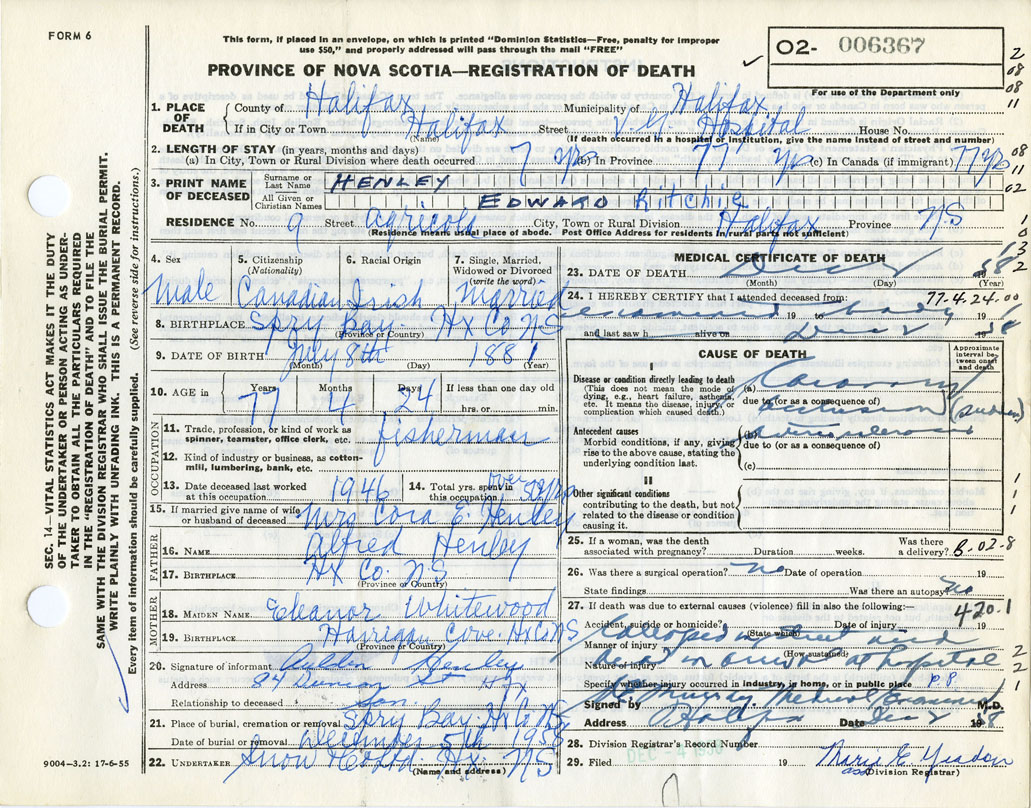 FORM 6
This form, if placed in an envelope, on which is printed "Dominion Statistics—Free, penalty for improper
use $50," and properly addressed will pass through the mail "FREE"
PROVINCE OF NOVA SCOTIA—REGISTRATION OF DEATH
02- 006367
For use of the Department only
2
08
08
11
1. PLACE OF DEATH
County of Halifax Municipality of Halifax
If in City or Town Halifax Street V.G. Hospital House No.
(Name) (If death occurred in a hospital or institution, give the name instead of street and number)
2. LENGTH OF STAY (in years, months and days)
(a) In City, Town or Rural Division where death occurred 7 yrs (b) In Province 77 yrs (c) In Canada (if immigrant) 77 yrs
08
11
02
3. PRINT NAME OF DECEASED
Surname or Last Name HENLEY
All Given or Christian Names EDWARD Ritchie
RESIDENCE No. 9 Street Agricola City, Town or Rural Division Halifax NS
(Residence means usual place of abode. Post Office Address for residents in rural parts not sufficient)
1
0
3
2
4. Sex
Male
5. Citizenship
(Nationality)
Canadian
6. Racial Origin
Irish
7. Single, Married,
Widowed or Divorced
(write the word)
Married
8. BIRTHPLACE Spry Bay. Hx Co NS
(Province or Country)
9. DATE OF BIRTH July 8th 1881
(Month) (Day) (Year)
10. AGE in
Years Months Days If less than one day old
77 4 24 hrs. or min.
OCCUPATION
11. Trade, profession, or kind of work as
spinner, teamster, office clerk, etc. fisherman
12. Kind of industry or business, as cotton-
mill, lumbering, bank, etc.
13. Date deceased last worked
at this occupation 1946
14. Total yrs. spent in
this occupation over 50 yrs
15. If married give name of wife
or husband of deceased Mrs Cora E. Henley
FATHER
16. NAME Alfred Henley
17. BIRTHPLACE Hx Co. NS
(Province or Country)
MOTHER
18. MAIDEN NAME Eleanor Whitewood
19. BIRTHPLACE Harrigan Cove. Hx Co NS
(Province or Country)
20. Signature of informant Henley
Address 84 St Hx
Relationship to deceased Son.
21. Place of burial, cremation or removal Spry Bay. Hx Co NS
Date of burial or removal December 5th 1958
22. UNDERTAKER Snow & Co Ltd. Hx. NS
(Name and address)
MEDICAL CERTIFICATE OF DEATH
23. DATE OF DEATH Dec 2 58
(Month) (Day) (Year)
24. I HEREBY CERTIFY that I attended deceased from: 77-4-24-00
examined 19 to body 19
and last saw h alive on Dec 2 1958
CAUSE OF DEATH
Approximate interval between onset and death
I
Disease or condition directly leading to death
(This does not mean the mode of
dying, e.g., heart failure, asthenia,
etc. It means the disease, injury, or
complication which caused death.)
(a) Coronary
due to (or as a consequence of)
occlusion (sudden)
Antecedent causes
Morbid conditions, if any, giving
rise to the above cause, stating the
underlying condition last.
(b)
due to (or as a consequence of)
(c)
II
Other significant conditions
contributing to the death, but not
related to the disease or condition
causing it.
1
1
1
25. If a woman, was the death
associated with pregnancy? Duration weeks. Was there
a delivery? B-02-8
26. Was there a surgical operation? no Date of operation 19
State findings Was there an autopsy? no
27. If death was due to external causes (violence) fill in also the following:— 420.1
Accident, suicide or homicide? Date of injury 19
(State which)
Manner of injury Collapsed in street and
(How sustained)
Nature of injury dead on arrival at hospital
2
2
Specify whether injury occurred in industry, in home, or in public place p.p. 1
Signed by Murray Medical Examiner M.D.
Address Halifax Date Dec 2 1958
28. Division Registrar's Record Number
DEC - 4 1958
29. Filed 19 Marie E.
Division Registrar)
SEC. 14—VITAL STATISTICS ACT MAKES IT THE DUTY
OF THE UNDERTAKER OR PERSON ACTING AS UNDER-
TAKER TO OBTAIN ALL THE PARTICULARS REQUIRED
IN THE "REGISTRATION OF DEATH" AND TO FILE THE
SAME WITH THE DIVISION REGISTRAR WHO SHALL ISSUE THE BURIAL PERMIT.
WRITE PLAINLY WITH UNFADING INK. THIS IS A PERMANENT RECORD.
Every item of information should be carefully supplied. (See reverse side for instructions.)
9004-3.2: 17-6-55